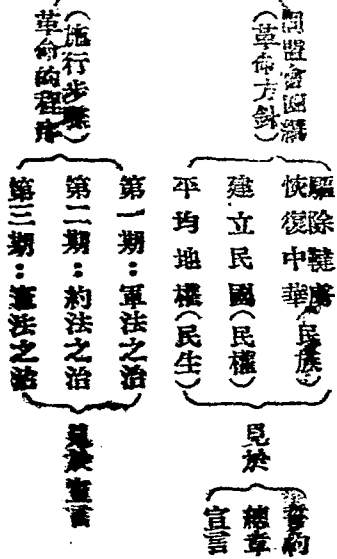 同盟會四綱
(革命方針)
驅除韃虜
恢復中華(民族)
建立民國(民權)
平均地權(民生)
見於
誓約
總章
宣言
革命的程序
(施行步驟)
第一期:軍法之治
第二期:約法之治
第三期:憲法之治
見於宣言